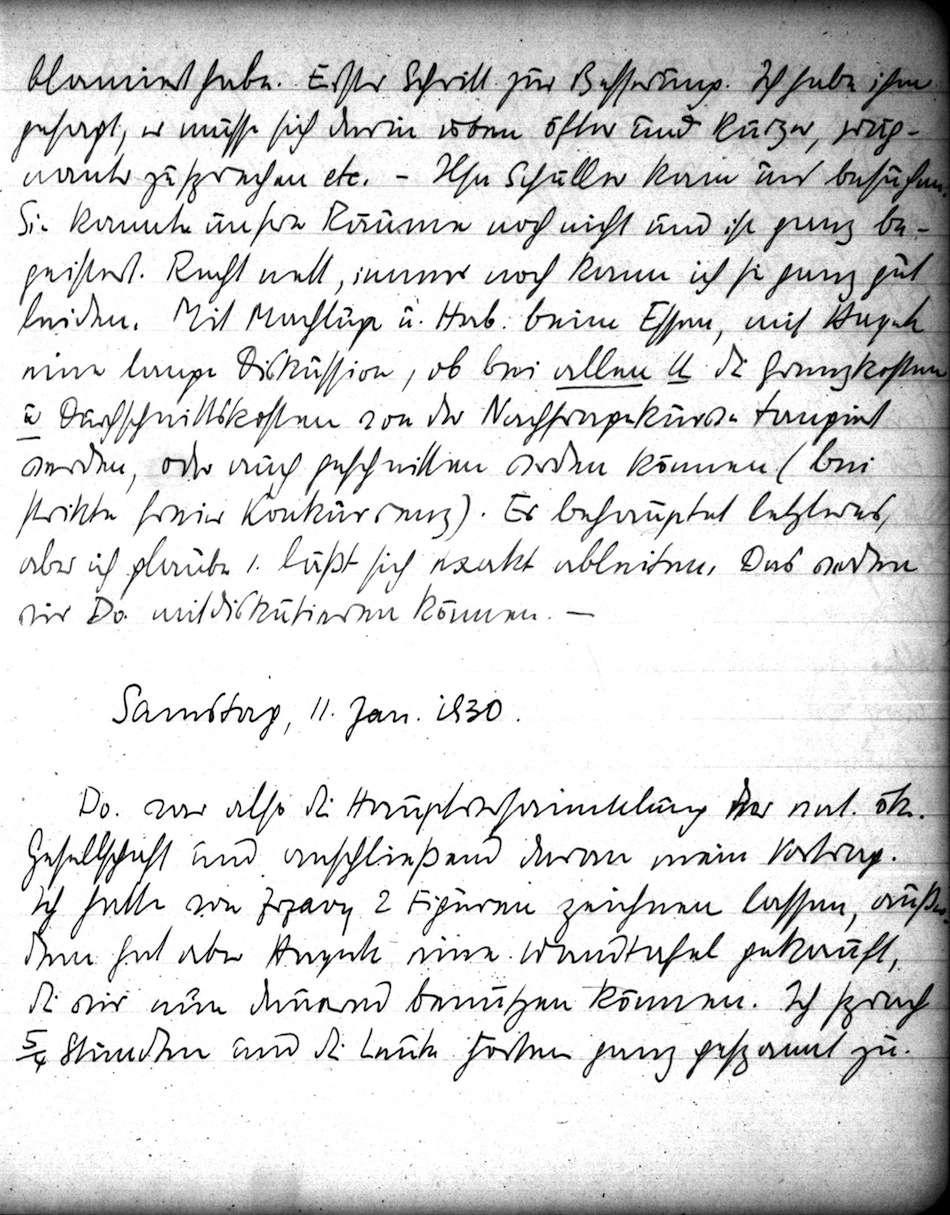 blamiert habe. Erster Schritt zur Besserung. Ich habe ihm
gesagt, er müsse sich darin üben öfter und kürzer, präg-
nanter zu sprechen etc. – Ilse Schüller kam uns besuchen.
Sie kannte unsere Räume noch nicht und ist ganz be-
geistert. Recht nett, immer noch kann ich sie ganz gut
leiden. Mit Machlup u. Hab. beim Essen, mit Hayek
eine lange Diskussion, ob bei allen U die Grenzkosten
u Durchschnittskosten von der Nachfragekurve tangiert
werden, oder auch geschnitten werden können (bei
strikte freier Konkurrenz). Er behauptet letzteres,
aber ich glaube 1. läßt sich exakt ableiten. Das werden
wir Do. mitdiskutieren können. —
Samstag, 11. Jan. 1930.
Do. war also die Hauptversammlung der nat. ök.
Gesellschaft und anschließend daran mein Vortrag.
Ich hatte von Zrzavy 2 Figuren zeichnen lassen, außer-
dem hat aber Hayek eine Wandtafel gekauft,
die wir nun dauernd benutzen können. Ich sprach
5/4 Stunden und die Leute hörten ganz gespannt zu.